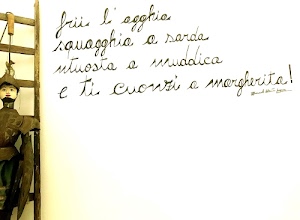 frii l'agghia
squagghia a sarda
ntuosta a muddica
e ti cuonzi a margherita!